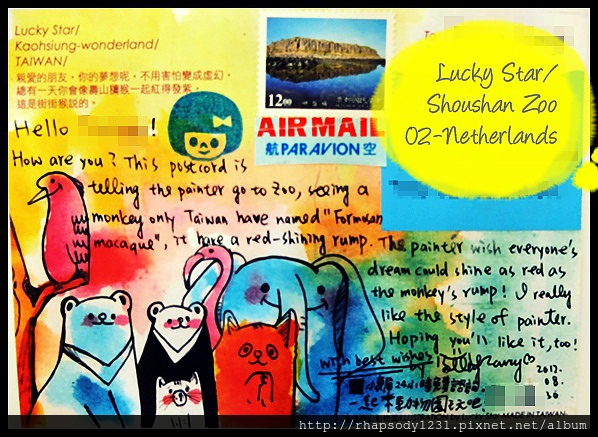 Lucky Star/
Kaohsiung-wonderland/
TAIWAN/
親愛的朋友，你的夢想呢，不用害怕變成虛幻，
總有一天你會像壽山獼猴一起紅得發紫。
這是街街猴說的。
12.00
AIRMAIL
航 PAR AVION 空
Lucky Star/
Shoushan Zoo
02-Netherlands
Hello !
How are you? This postcard is
telling the painter go to Zoo, seeing a
monkey only Taiwan have named "Formosan
macaque", it have a red-shining rump. The painter wish everyone's
dream could shine as red as
the monkey's rump! I really
like the style of painter.
Hoping you'll like it, too!
with best wishes by
2012.
08.
MADE IN TAIWAN
http://rhapsody1231.pixnet.net/album